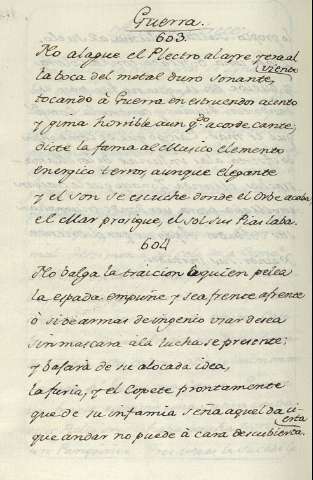 Guerra.
603.
No alague el Plectro al ayre y era al
viento
la boca del metal duro sonante,
tocando à Guerra en estruendos acento
y gima horrible aun q.do acorde cante,
dicte la fama al Musico elemento
energico terror, aunque elegante
y el son se escuche donde el Orbe acaba,
el Mar prosigue, el Sol sus Pias laba.
604
No balga la traicion à quien pelea
la espada empuñe y sea frente a frente
ò si de armas de ingenio usar desea
sin mascara à la lucha se presente:
y bastarà de su alocada idea,
la furia, y el Copete prontamente
que de su infamia seña aquel da ci-
erta
que andar no puede à cara descubierta.